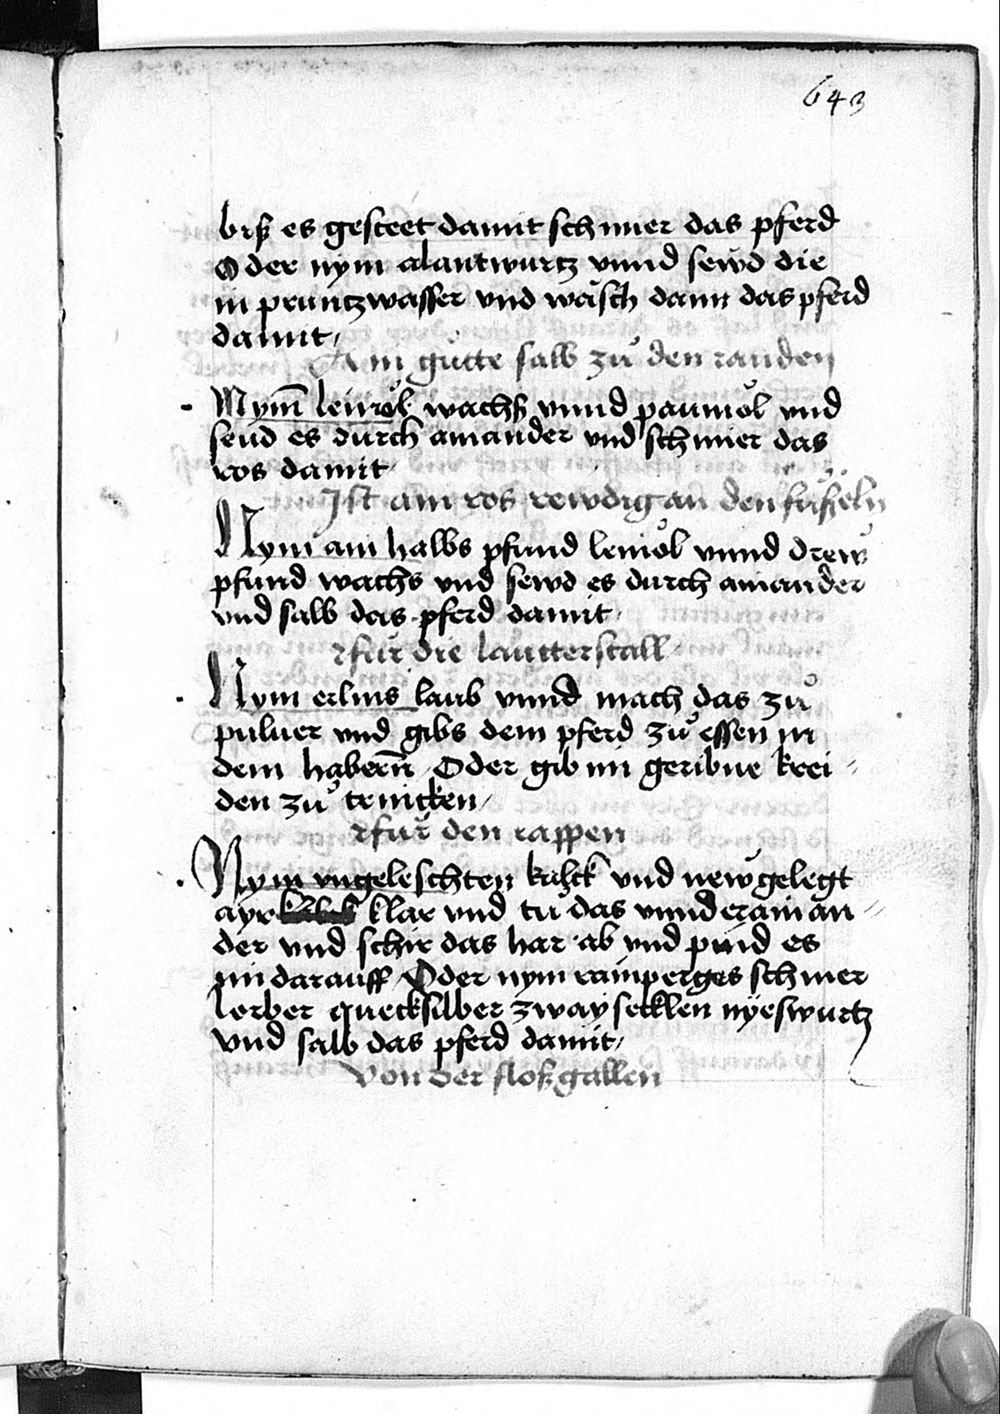 643
biß es gesteet damit schmier das pferd
Oder nym alantwurtz vnnd sewd die
in pruntzwasser vnd wäsch dann das pferd
damit
Ain gůtte salb zů den rauden
Nymm leinöl wachß vnnd paumöl vnd
seud es durch ainander vnd schmier das
ros damit
Ist ain ros rewdig an den füßeln
Nym ain halbs pfund leinöl vnnd drew
pfund wachs vnd sewd es durch ainander
vnd salb das pferd damit
für die lautterstall
Nym erlins laub vnnd mach das zů
puluer vnd gibs dem pferd zů essen in
dem habernn Oder gib im geribne krei
den zů trincken
für den rappen
Nym vngeleschten kalck vnd new gelegt
ayr klar vnd tu das vnnder ain an
der vnd schir das har ab vnd pind es
im darauff Oder nym rainperges schmer
lorber quecksilber zway nyeswurtz
vnd salb das pferd damit
Von der floßgallen